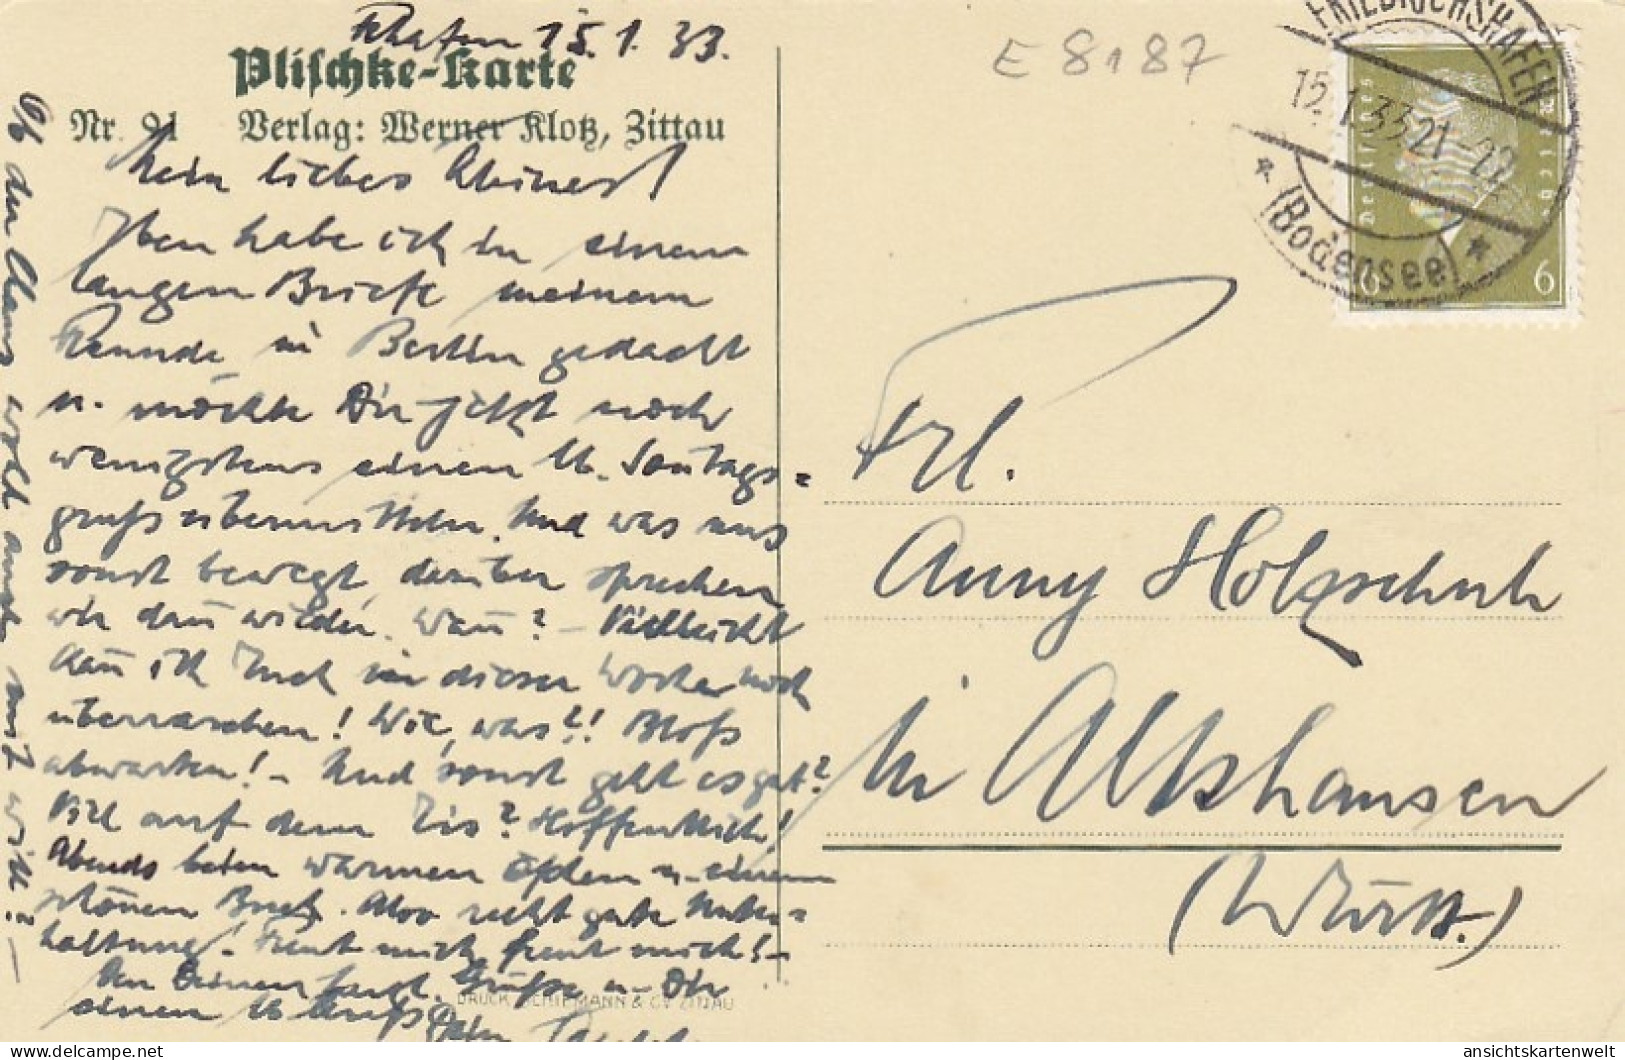 15.1.33.
Plischke-Karte
Nr. 91 Verlag: Werner Klotz, Zittau
Mein liebes Kleines!
Eben habe ich in einem
langen Briefe meinem
Freunde in Berlin gedacht
u. möchte Dir jetzt noch
wenigstens einen lb. Sontags=
gruß übermitteln. Und was uns
sonst bewegt, darüber sprechen
wir dann wieder. Wann? – Vielleicht
kann ich Euch in dieser Woche noch
überraschen! Wie, was?! Bloß
abwarten! – Und sonst geht es gut?
Viel auf dem Eis? Hoffentlich!
Abends beim warmen Ofen u. einem
schönen Buch. Also recht gute Unter=
haltung! Freut mich, freut mich! –
An Deinen Grüße u. Dir
einen lb Gruß Dein
Ob der Claus wohl auch mit will? –
DRUCK SCHIEMANN & CO ZITTAU
E 8187
FRIEDRICHSHAFEN
15.1.33.21-22
* (Bodensee) *
Deutsches Reich
6 6
Frl.
Anny Holzschuh
in Altshausen
(Württ.)
ansichtskartenwelt